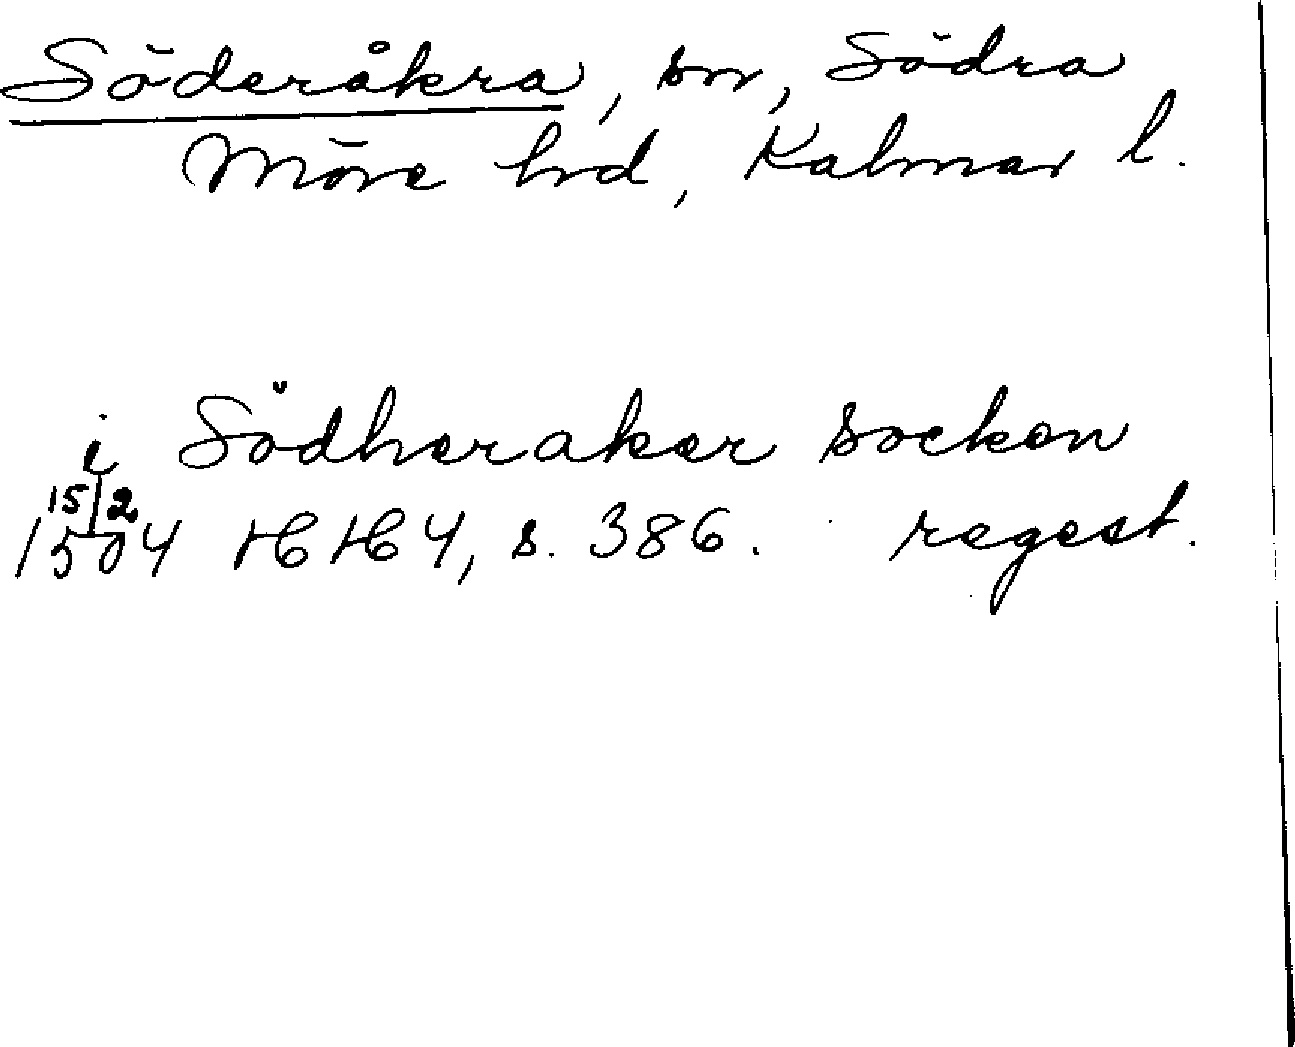 Söderåkra, sn, Södra
Möre hd, Kalmar l.
i Södheraker socken
15/2
1504 HH 4, s. 386. regest.